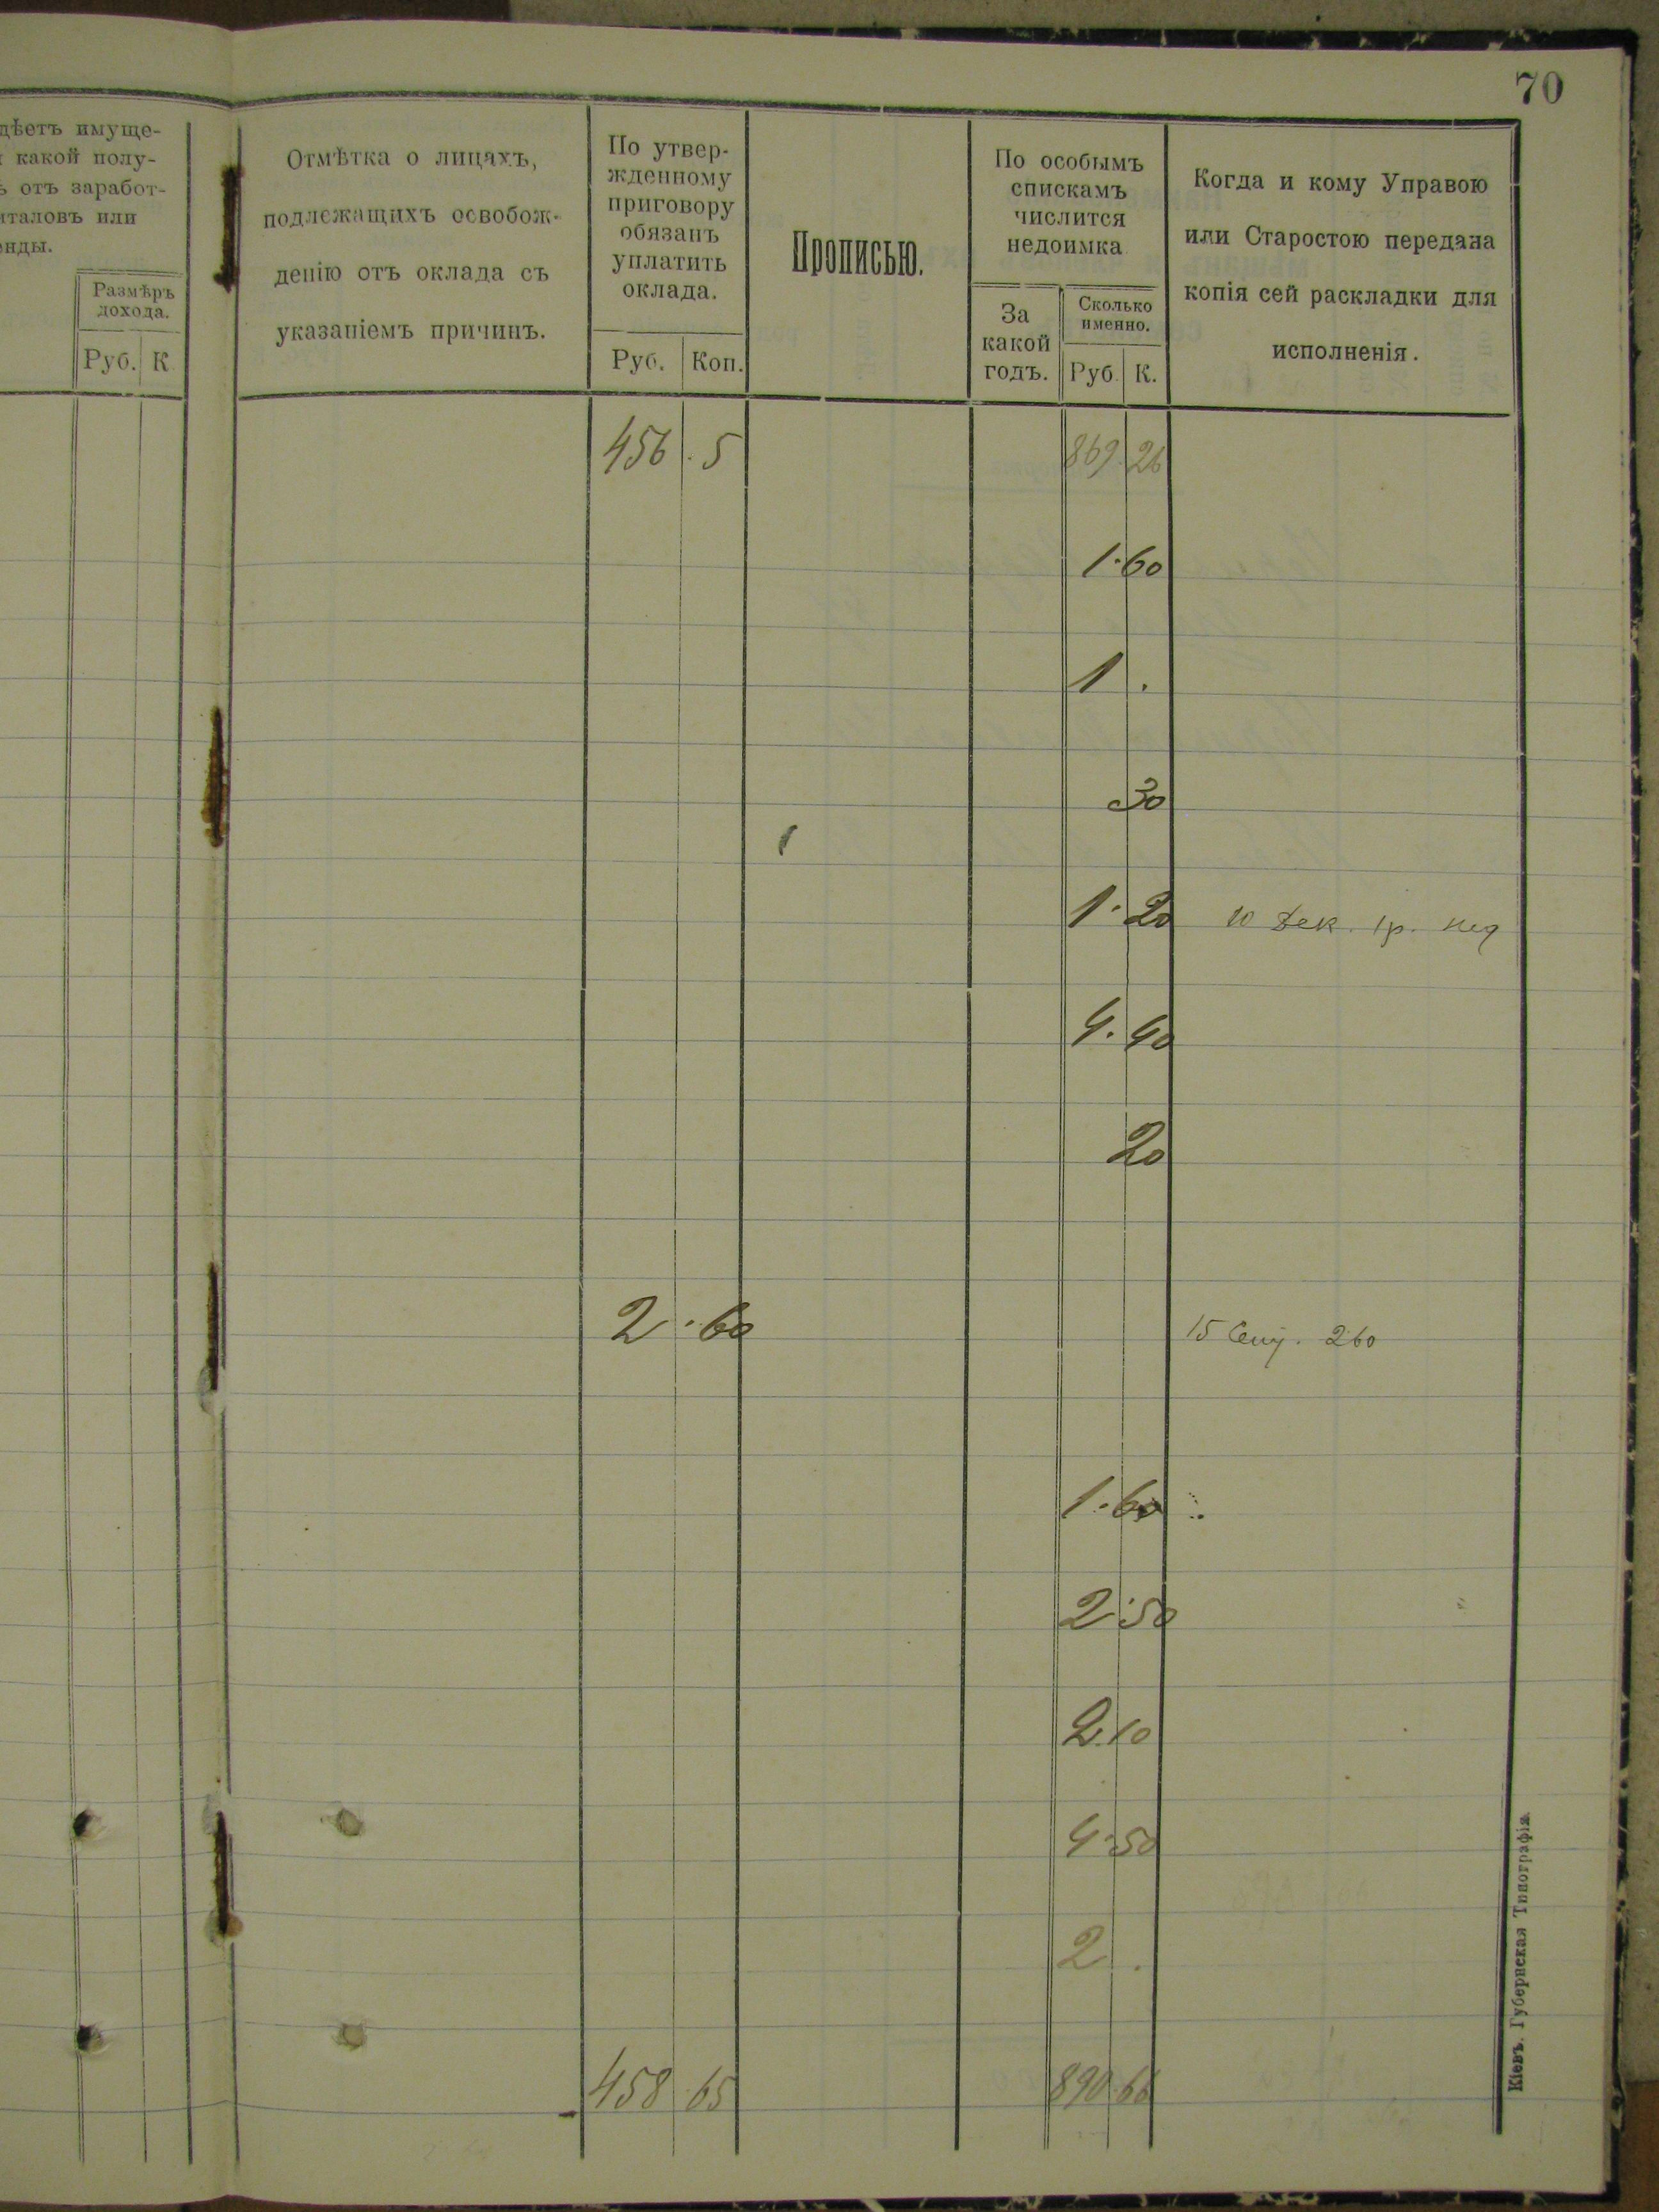 70
дѣетъ имуще-
какой полу-
отъ заработ-
италовъ или
енды.
Размѣръ
дохода.
Руб. К
Отмѣтка о лицахъ,
подлежащихъ освобож-
денію отъ оклада съ
указаніемъ причинъ.
По утвер-
жденному
приговору
обязанъ
уплатить
оклада.
Руб. Коп.
Прописью.
По особымъ
спискамъ
числится
недоимка
За
какой
годъ.
Сколько
именно.
Руб. К.
Когда и кому Управою
или Старостою передана
копія сей раскладки для
исполненія.
456 . 5 869. 26
1.60
1 .
30
1. 20 10 Дек. 1р. нед
4. 40
20
2 . 60 15 Сент. 260
1.60
2.50
2.10
4.50
2 .
458.65 890.66
Кіевъ. Губернская Типографія